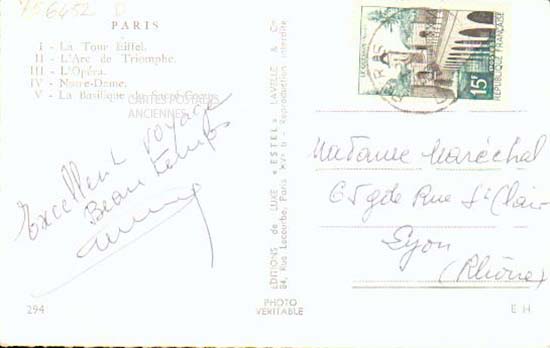 456452 D
PARIS
I - La Tour Eiffel.
II - L'Arc de Triomphe.
III - L'Opéra.
IV - Notre-Dame.
V - La Basilique du Sacré-Coeur.
CARTES POSTALES
ANCIENNES
Excellent voyage
Beau temps
294
EDITIONS de LUXE "ESTEL" LAVELLE & Cie
84, Rue Lecourbe, Paris XVe - Reproduction interdite
PHOTO
VERITABLE
PARIS
15F
POSTES
REPUBLIQUE FRANÇAISE
Madame Maréchal
65 gde Rue St Clair
Lyon
(Rhône)
E H